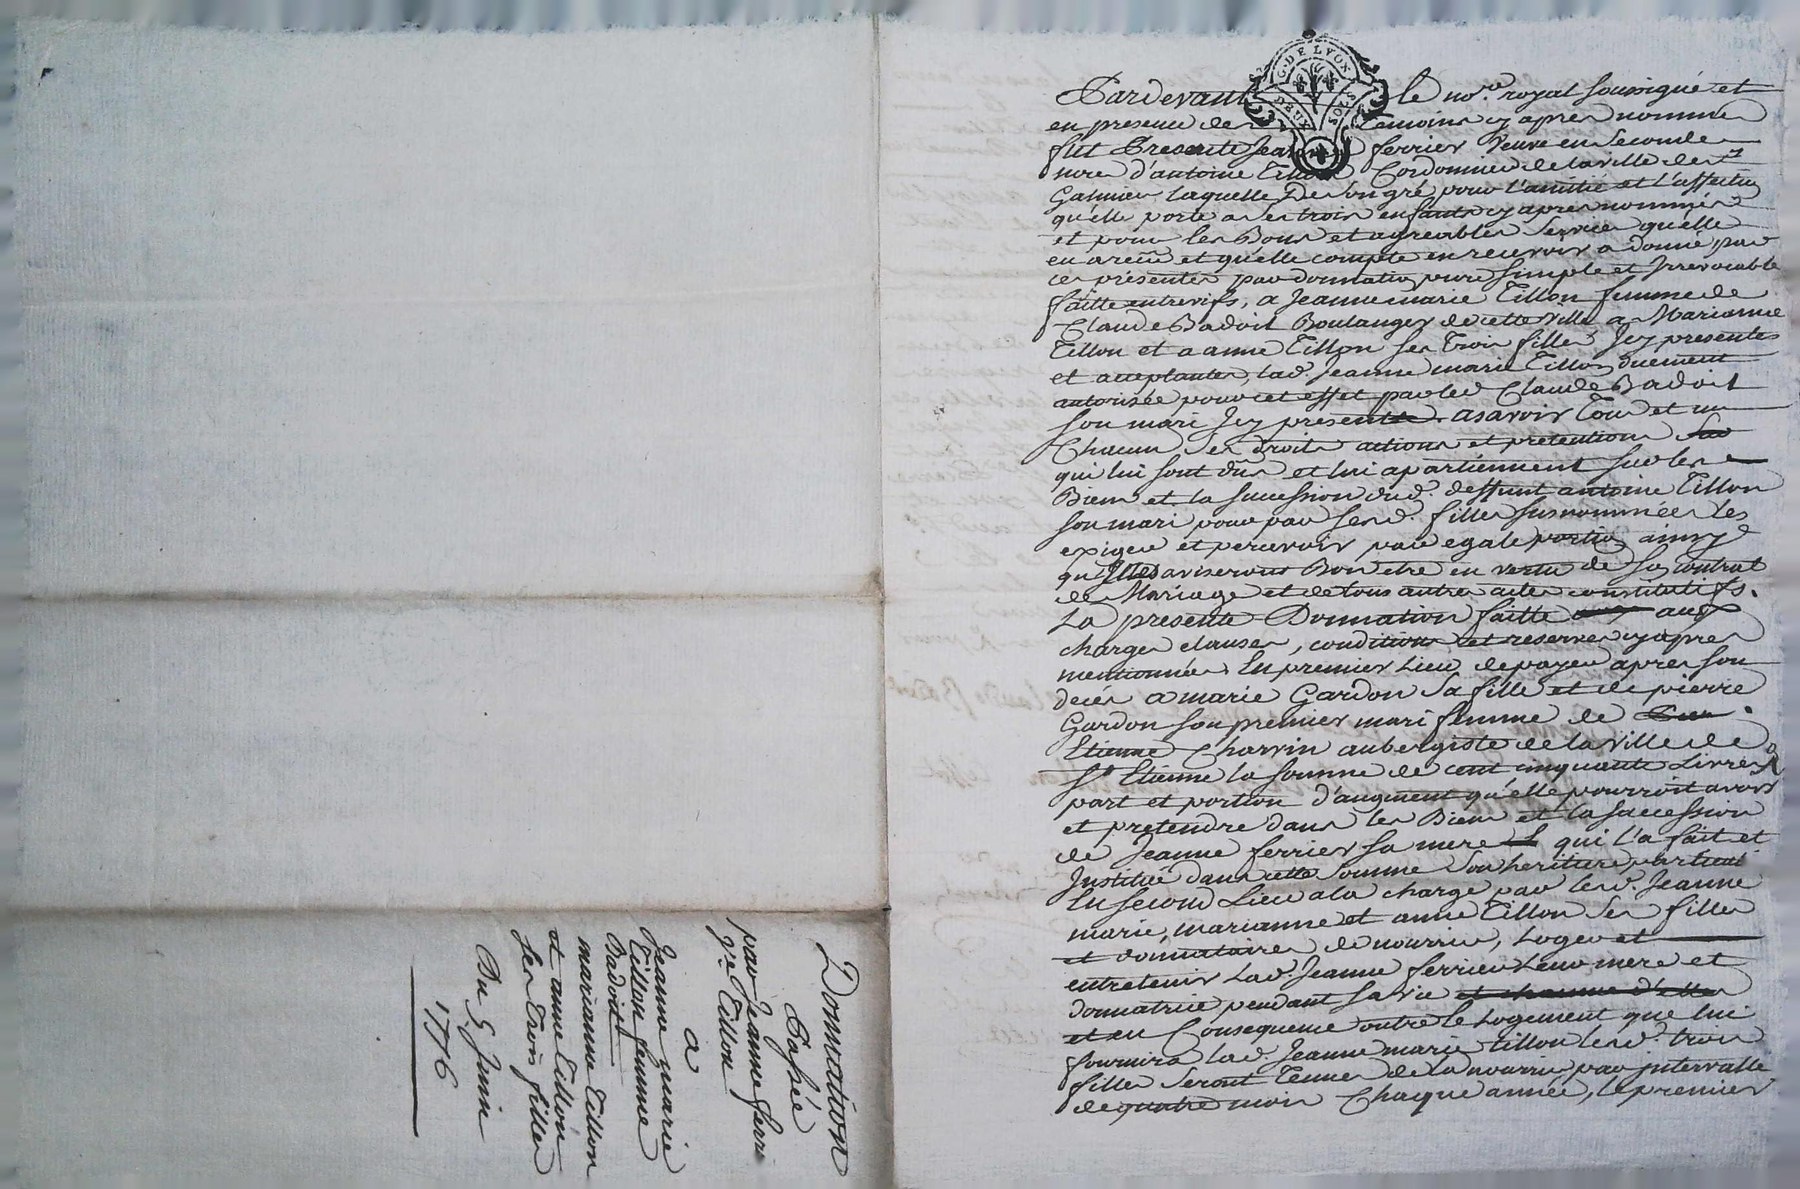 G. DE LYON
DEUX SOLS
Pardevant le no.re royal soussigné et
en presence des temoins cy apres nommés
fut Presente Jeanne ferrier Veuve en Seconde
noces d'antoine Tillon Cordonnier de la ville de st
Galmier laquelle De son gré pour l'amitié et l'affection
qu'elle porte a ses trois enfants cy apres nommés
et pour les Bons et agreables Services qu'elle
en a recûe et qu'elle compte en recevoir a donné par
ces présentes par donnation pure simple et Irrevocable
faitte entrevifs, a Jeanne marie Tillon femme de
Claude Badoit Boulanger de cette ville a Marianne
Tillon et a anne Tillon ses Trois filles Icy presentes
et acceptantes, lad. Jeanne marie Tillon duement
autorisée pour cet effet par led Claude Badoit
son mari Icy present asavoir Tous et un
Chacun Ses droits actions et pretentions
qui lui sont dûs et lui apartiennent sur les
Biens et la succession dud. deffunt antoine Tillon
son mari pour par sesd. filles susnommées les
exiger et percevoir par egale portion ainsy
qu'Elles aviseront Bon etre en vertu de son contrat
de Mariage et de tous autres actes constitutifs.
La presente Donnation faitte aux
charges clauses, conditions et reserves cy apres
mentionnées En premier Lieu de payer apres son
decés a marie Gardon sa fille et de pierre
Gardon son premier mari femme de
Etienne Charvin aubergiste de la ville de
St Etienne la somme de cent cinquante Livres
part et portion d'augment qu'elle pourroit avoir
et pretendre dans les Biens et la succession
de Jeanne ferrier sa mere qui l'a fait et
Instituée dans cette somme Son heritiere particul.
En second Lieu a la charge par lesd. Jeanne
marie, marianne et anne Tillon Ses filles
et donnataires de nourrir, Loger et
entretenir Lad. Jeanne ferrier Leur mere et
donnatrice pendant sa vie et chacune d'elles
et en Consequence outre le Logement que lui
fournira lad. Jeanne marie tillon lesd. trois
filles seront Tenues de la nourrir par intervalle
de quatre mois Chaque année, le premier
Donnation
Passée
par Jeanne ferri
Ve Tillon
a
Jeanne marie
Tillon femme
Badoit
marianne Tillon
et anne Tillon
ses trois filles
Du 5 Juin
1776